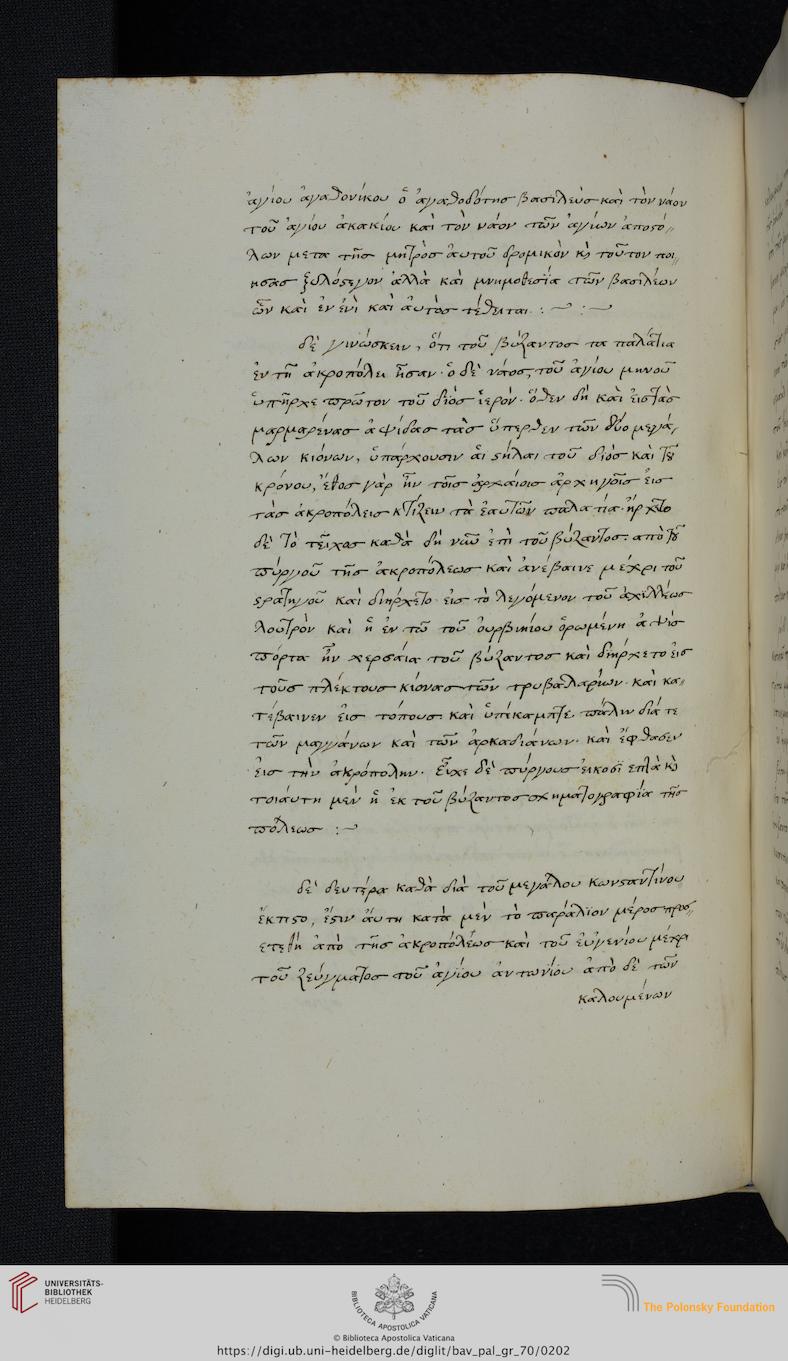 ἁγίου ἀγαθονίκου ὁ ἀγαθοδότης βασιλεὺς καὶ τὸν ναὸν
τοῦ ἁγίου ἀκακίου καὶ τὸν ναὸν τῶν ἁγίων ἀποστό
λων μετὰ τῆς μητρὸς ἀυτοῦ δρομικὸν κ̀ τοῦτον ποι
ησας ξυλόστεγον ἀλλὰ καὶ μνημοθεσία τῶν βασιλέων
ὧν καὶ ἐν ἑνὶ καὶ ἀυτὸς τέθειται :~ :~
δὲ γινώσκειν, ὅτι τοῦ βύζαντος τα παλάτια
ἐν τῆ ἀκροπόλει ἦσαν· ὁ δὲ ναὸς, τοῦ ἁγίου μηνοῦ
ὑπῆρχε πρῶτον τοῦ διὸς ἱερὸν· ὅθεν δὴ καὶ ἐις τὰς
μαρμαρένας ἁψίδας τὰς ὕπερθεν τῶν δύο μεγά
λων κιόνων, ὑπάρχουσιν ἁι στήλαι τοῦ διὸς καὶ τοῦ
κρόνου, ἔθος γὰρ ἦν τοῖς ἀρχαίοις ἀρχηγοῖς ἐις
τὰς ἀκροπόλεις κτίζειν τὰ ἑαυτῶν παλάτια· ἤρχετο
δὲ τὸ τεῖχος καθὰ δὴ νῦν ἐπὶ τοῦ βύζαντος· ἀπὸ τοῦ
πύργου τῆς ἀκροπόλεως καὶ ἀνέβαινε μέχρι τοῦ
στρατηγοῦ καὶ διήρχετο ἐις τὸ λεγόμενον τοῦ ἀχιλλέως
λουτρὸν καὶ ἡ ἐν τῶ τοῦ ὀυρβικίου ὁρωμένη ἁψὶς
πόρτα ἦν χερσαία τοῦ βύζαντος καὶ διήρχετο ἐις
τοῦς πλέκτους κίονας τῶν τζυκαλαρίων· καὶ κα
τέβαινεν ἐις τόπους· καὶ ὑπέκαμπτε πάλιν διά τε
τῶν μαγγάνων καὶ τῶν ἀρκαδιάνων· καὶ ἔφθασεν
ἐις τὴν ἀκρόπολην· Εἶχε δὲ πύργους ἐικοσϊ επτὰ κ̀
τοιάυτη μὲν ἡ ἐκ τοῦ βύζαντος σχηματογραφία τῆς
πόλεως :~
δὲ δευτέρα καθὰ διὰ τοῦ μεγάλου Κωνσταντίνου
ἔκτιστο, ἔστιν ἄυτη κατὰ μὲν τὸ παράλϊον μέρος προσ
ετέθη ἀπὸ τῆς ἀκροπόλεως καὶ τοῦ ἐυγενίου μέχρι
τοῦ ζεύγματος τοῦ ἁγίου ἀντωνίου ἀπὸ δὲ τῶν
καλουμένων
UNIVERSITÄTS-
BIBLIOTHEK
HEIDELBERG
BIBLIOTECA APOSTOLICA VATICANA
The Polonsky Foundation
© Biblioteca Apostolica Vaticana
https://digi.ub.uni-heidelberg.de/diglit/bav_pal_gr_70/0202